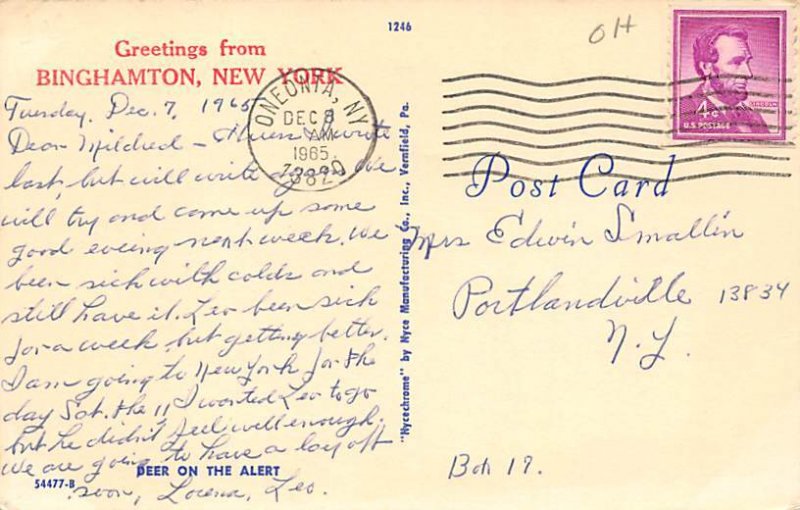 1246
OH
Greetings from
BINGHAMTON, NEW YORK
ONEONTA, NY
DEC 8
AM
1965
13820
4¢
LINCOLN
U.S. POSTAGE
Tuesday, Dec. 7, 1965
Dear Mildred - I write
last but will write again. We
will try and come up some
good eveing next week. We
been sick with colds and
still have it. Leo been sick
for a week but getting better.
I am going to New York for the
day Sat. the 11 I wanted Leo to go
but he didn't feel well enough.
We are going to have a lay off
soon, Lorena, Leo.
DEER ON THE ALERT
54477-B
"Nycechrome" by Nyce Manufacturing Co., Inc., Vernfield, Pa.
Post Card
Mrs Edwin Smallin
Portlandville 13834
N.Y.
Box 19.